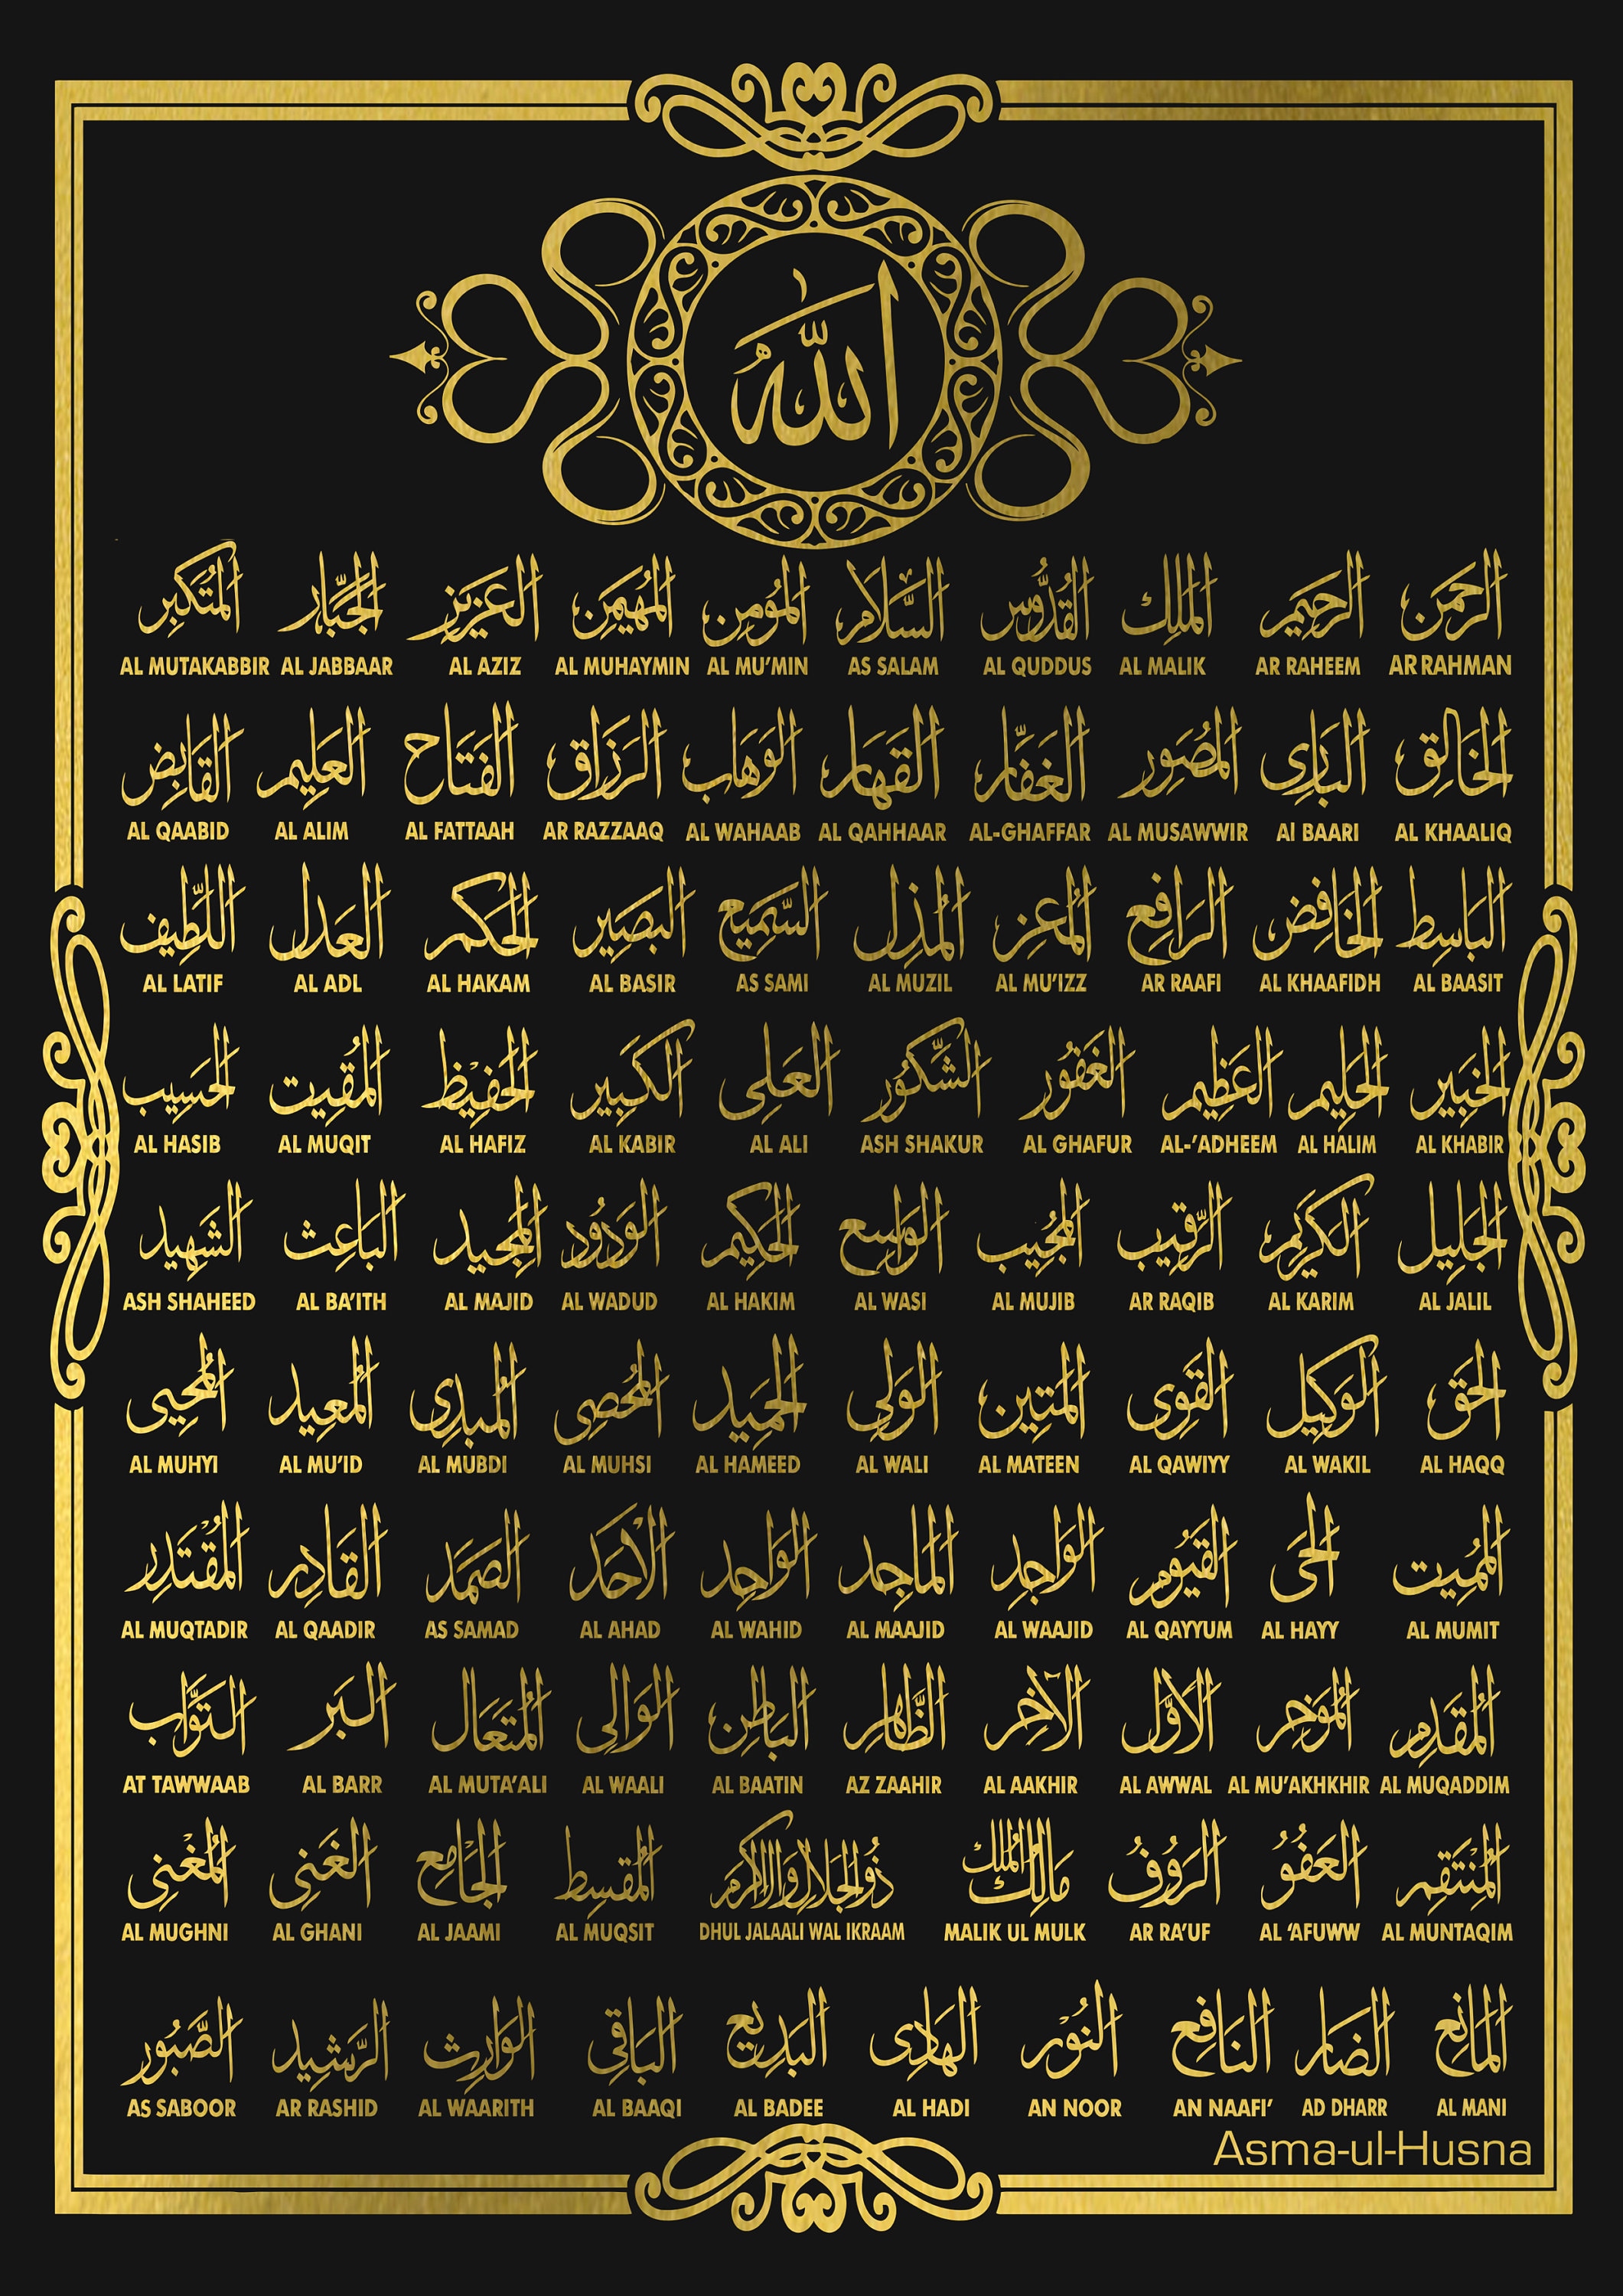 الله
الرحمن الرحيم الملك القدوس السلام المؤمن المهيمن العزيز الجبار المتكبر
AL MUTAKABBIR AL JABBAAR AL AZIZ AL MUHAYMIN AL MU'MIN AS SALAM AL QUDDUS AL MALIK AR RAHEEM AR RAHMAN
الخالق البارى المصور الغفار القهار الوهاب الرزاق الفتاح العليم القابض
AL QAABID AL ALIM AL FATTAAH AR RAZZAAQ AL WAHAAB AL QAHHAAR AL-GHAFFAR AL MUSAWWIR Al BAARI AL KHAALIQ
الباسط الخافض الرافع المعز المذل السميع البصير الحكم العدل اللطيف
AL LATIF AL ADL AL HAKAM AL BASIR AS SAMI AL MUZIL AL MU'IZZ AR RAAFI AL KHAAFIDH AL BAASIT
الخبير الحليم العظيم الغفور الشكور العلى الكبير الحفيظ المقيت الحسيب
AL HASIB AL MUQIT AL HAFIZ AL KABIR AL ALI ASH SHAKUR AL GHAFUR AL-'ADHEEM AL HALIM AL KHABIR
الجليل الكريم الرقيب المجيب الواسع الحكيم الودود المجيد الباعث الشهيد
ASH SHAHEED AL BA'ITH AL MAJID AL WADUD AL HAKIM AL WASI AL MUJIB AR RAQIB AL KARIM AL JALIL
الحق الوكيل القوى المتين الولى الحميد المحصى المبدى المعيد المحيى
AL MUHYI AL MU'ID AL MUBDI AL MUHSI AL HAMEED AL WALI AL MATEEN AL QAWIYY AL WAKIL AL HAQQ
المميت الحى القيوم الواجد الماجد الواحد الاحد الصمد القادر المقتدر
AL MUQTADIR AL QAADIR AS SAMAD AL AHAD AL WAHID AL MAAJID AL WAAJID AL QAYYUM AL HAYY AL MUMIT
المقدم المؤخر الاول الآخر الظاهر الباطن الوالى المتعال البر التواب
AT TAWWAAB AL BARR AL MUTA'ALI AL WAALI AL BAATIN AZ ZAAHIR AL AAKHIR AL AWWAL AL MU'AKHKHIR AL MUQADDIM
المنتقم العفو الرؤف مالك الملك ذو الجلال والاكرام المقسط الجامع الغنى المغنى
AL MUGHNI AL GHANI AL JAAMI AL MUQSIT DHUL JALAALI WAL IKRAAM MALIK UL MULK AR RA'UF AL 'AFUWW AL MUNTAQIM
المانع الضار النافع النور الهادى البديع الباقى الوارث الرشيد الصبور
AS SABOOR AR RASHID AL WAARITH AL BAAQI AL BADEE AL HADI AN NOOR AN NAAFI' AD DHARR AL MANI
Asma-ul-Husna